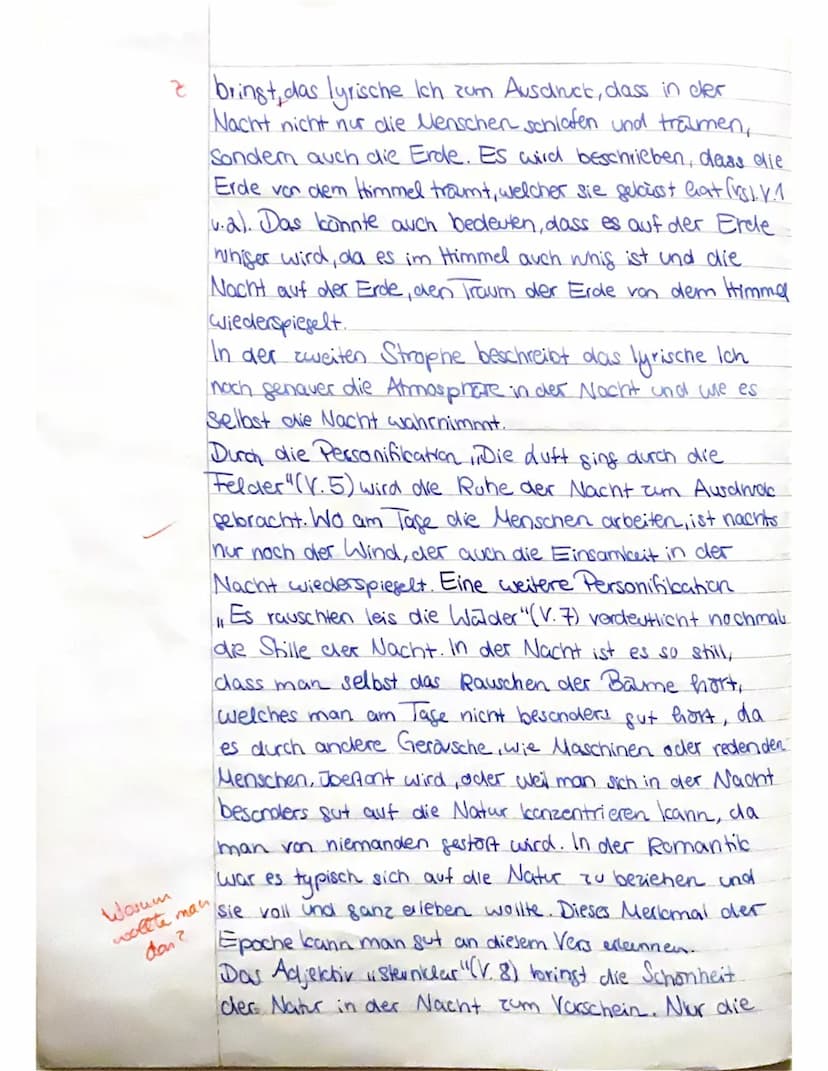 z bringt, das lyrische Ich zum Ausdruck, dass in der
Nacht nicht nur die Menschen schlafen und träumen,
sondern auch die Erde. Es wird beschrieben, dass die
Erde von dem Himmel träumt, welcher sie geküsst hat (vgl. V.1
u.2). Das könnte auch bedeuten, dass es auf der Erde
ruhiger wird, da es im Himmel auch ruhig ist und die
Nacht auf der Erde, den Traum der Erde von dem Himmel
wiederspiegelt.
In der zweiten Strophe beschreibt das lyrische Ich
noch genauer die Atmosphäre in der Nacht und wie es
selbst die Nacht wahrnimmt.
Durch die Personifikation „Die Luft ging durch die
Felder“(V.5) wird die Ruhe der Nacht zum Ausdruck
gebracht. Wo am Tage die Menschen arbeiten, ist nachts
nur noch der Wind, der auch die Einsamkeit in der
Nacht wiederspiegelt. Eine weitere Personifikation
„Es rauschten leis die Wälder“(V.7) verdeutlicht nochmals
die Stille der Nacht. In der Nacht ist es so still,
dass man selbst das Rauschen der Bäume hört,
welches man am Tage nicht besonders gut hört, da
es durch andere Geräusche, wie Maschinen oder redenden
Menschen, übertönt wird, oder weil man sich in der Nacht
besonders gut auf die Natur konzentrieren kann, da
man von niemanden gestört wird. In der Romantik
war es typisch sich auf die Natur zu beziehen und
sie voll und ganz erleben wollte. Dieses Merkmal der
Warum
wollte man
das?
Epoche kann man gut an diesem Vers erkennen.
Das Adjektiv „sternklar“(V.8) bringt die Schönheit
der Natur in der Nacht zum Vorschein. Nur die